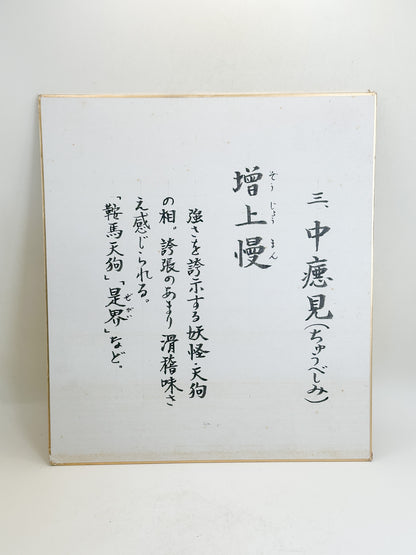 三、中癋見(ちゅうべしみ)
増上慢
ぞう じょう まん
強さを誇示する妖怪・天狗
の相。誇張のあまり滑稽味さ
え感じられる。
「鞍馬天狗」「是界」など。
ぜがい